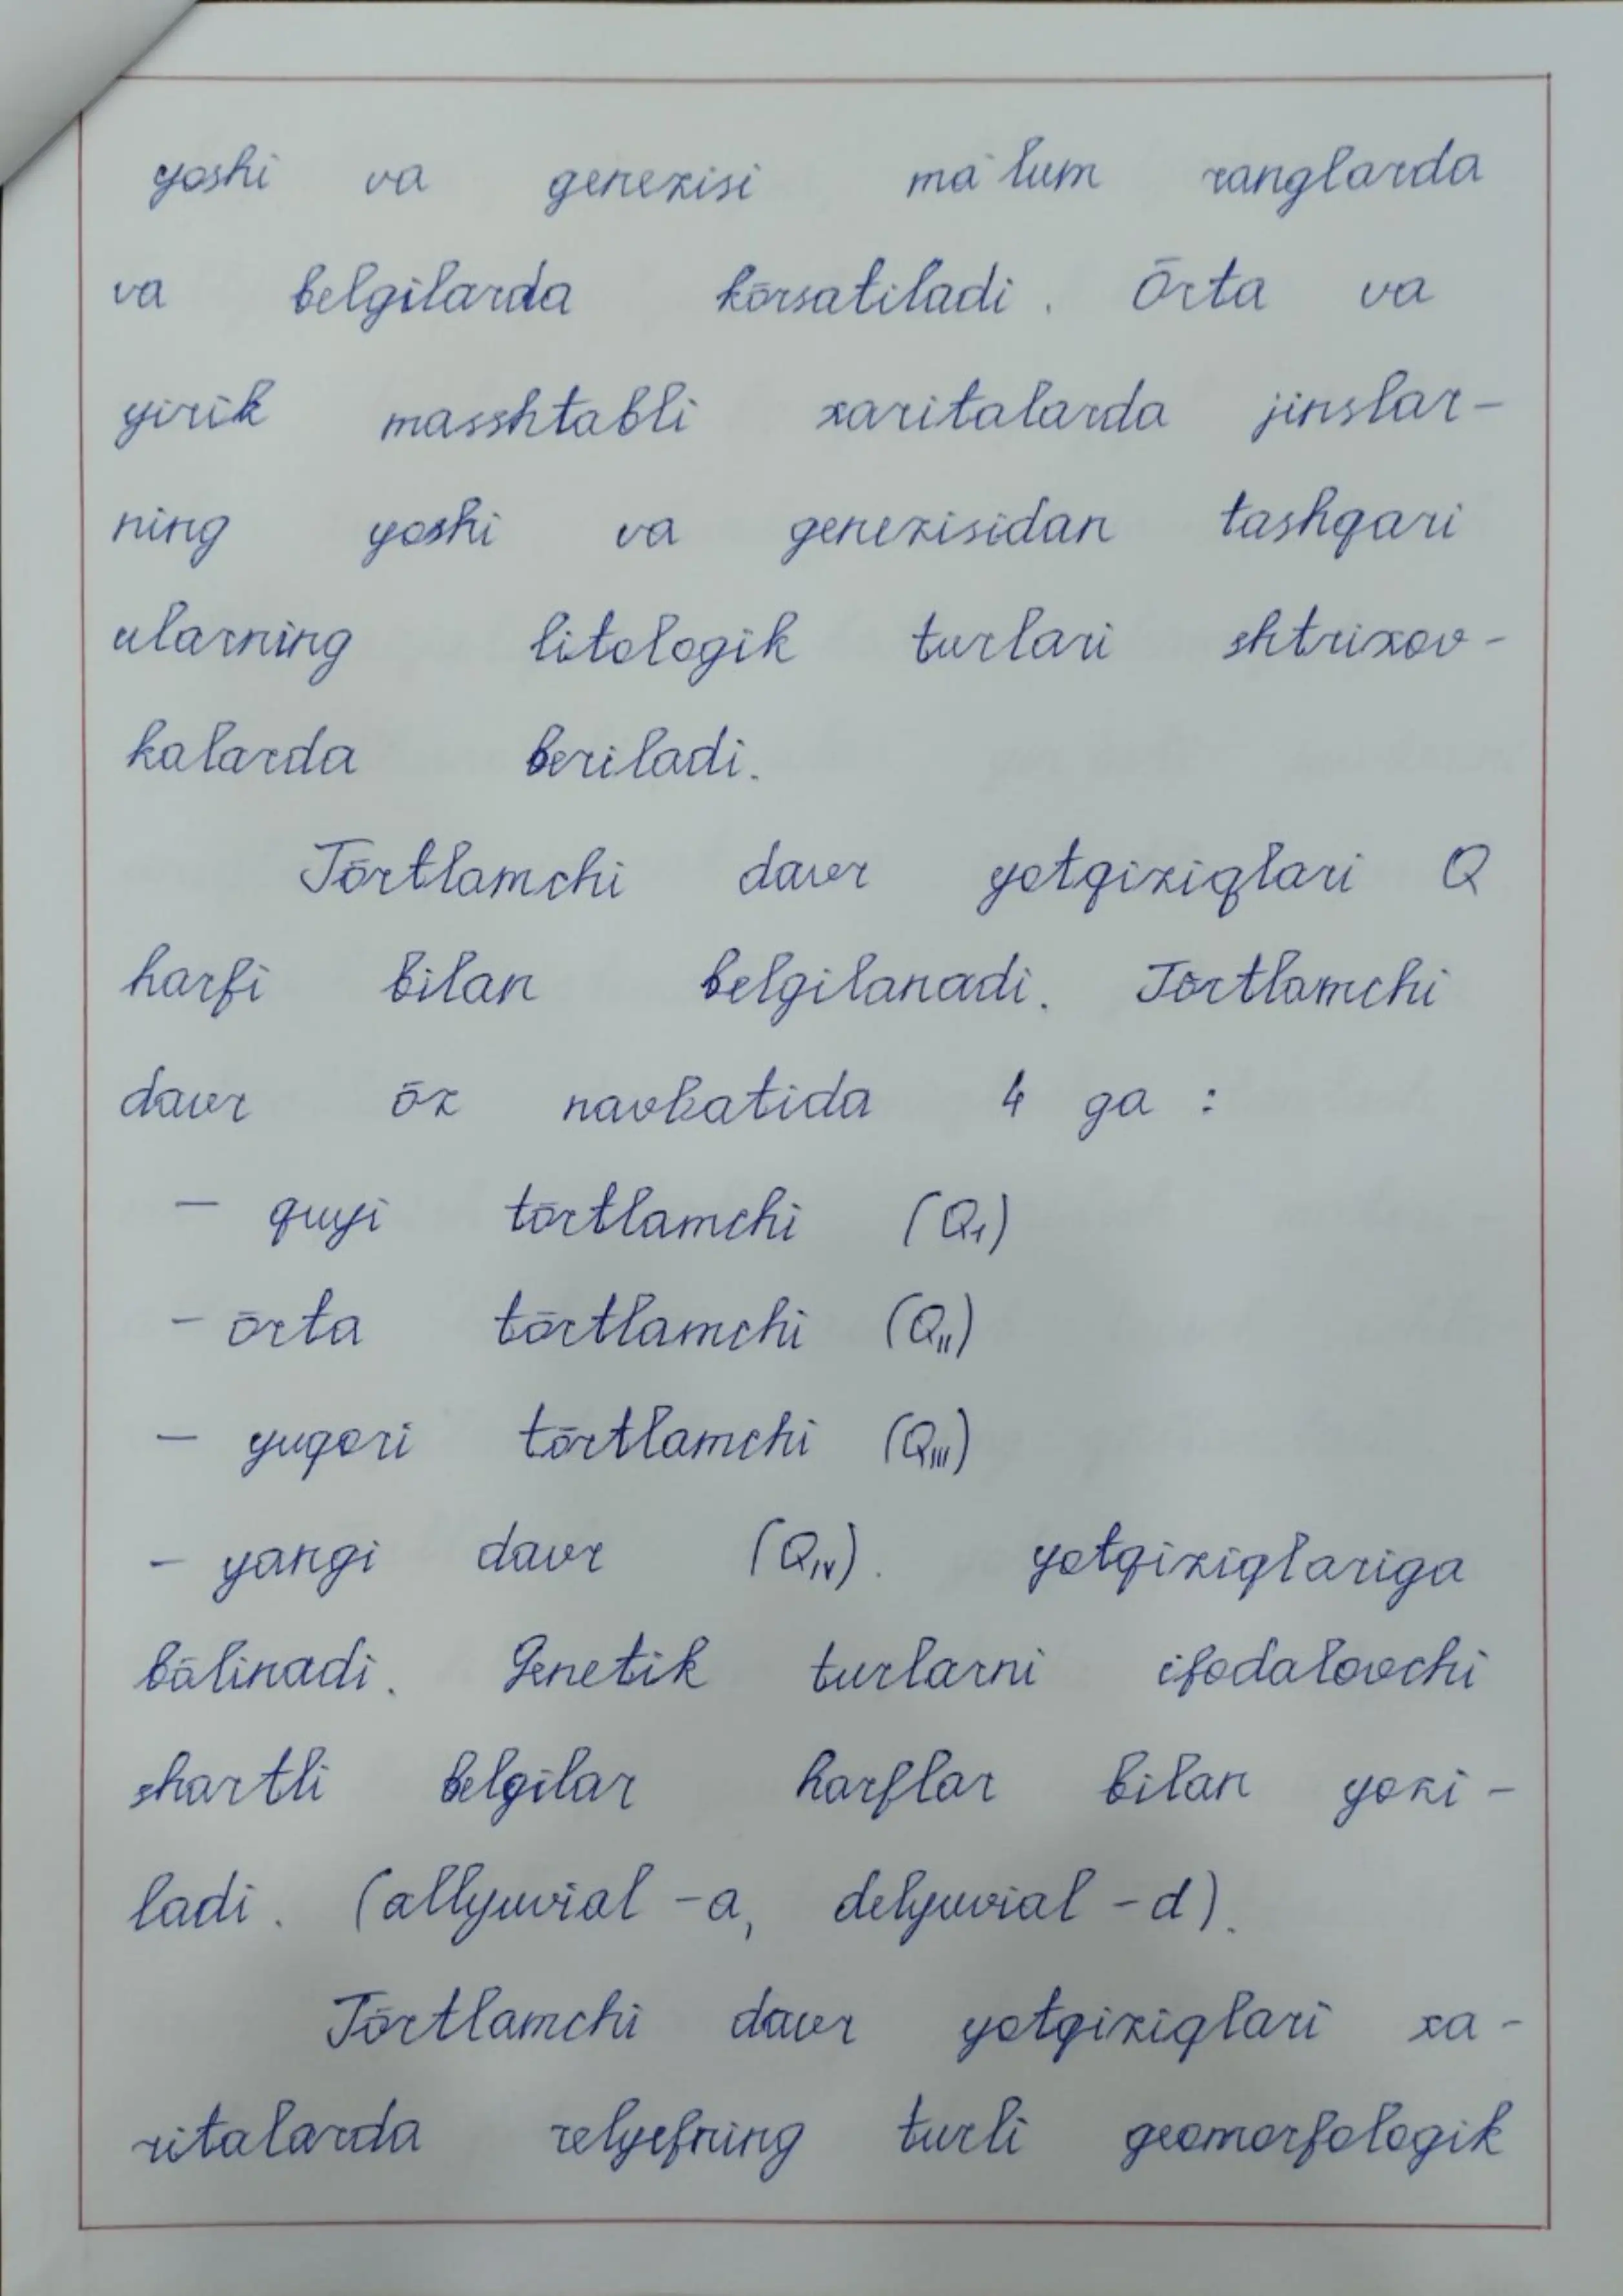 yoshi va genezisi ma'lum ranglarda
va belgilarda kōrsatiladi. Ōrta va
yirik masshtabli xaritalarda jinslar-
ning yoshi va genezisidan tashqari
ularning litologik turlari shtrixov-
kalarda beriladi.
Tōrtlamchi davr yotqiziqlari Q
harfi bilan belgilanadi. Tōrtlamchi
davr ōz navbatida 4 ga :
— quyi tōrtlamchi (Q₁)
- ōrta tōrtlamchi (Qıı)
— yuqori tōrtlamchi (Qııı)
- yangi davr (Qıv). yotqiziqlariga
bōlinadi. Genetik turlarni ifodalovchi
shartli belgilar harflar bilan yozi-
ladi. (allyuvial -a, delyuvial -d).
Tōrtlamchi davr yotqiziqlari xa-
ritalarda relyefning turli geomorfologik